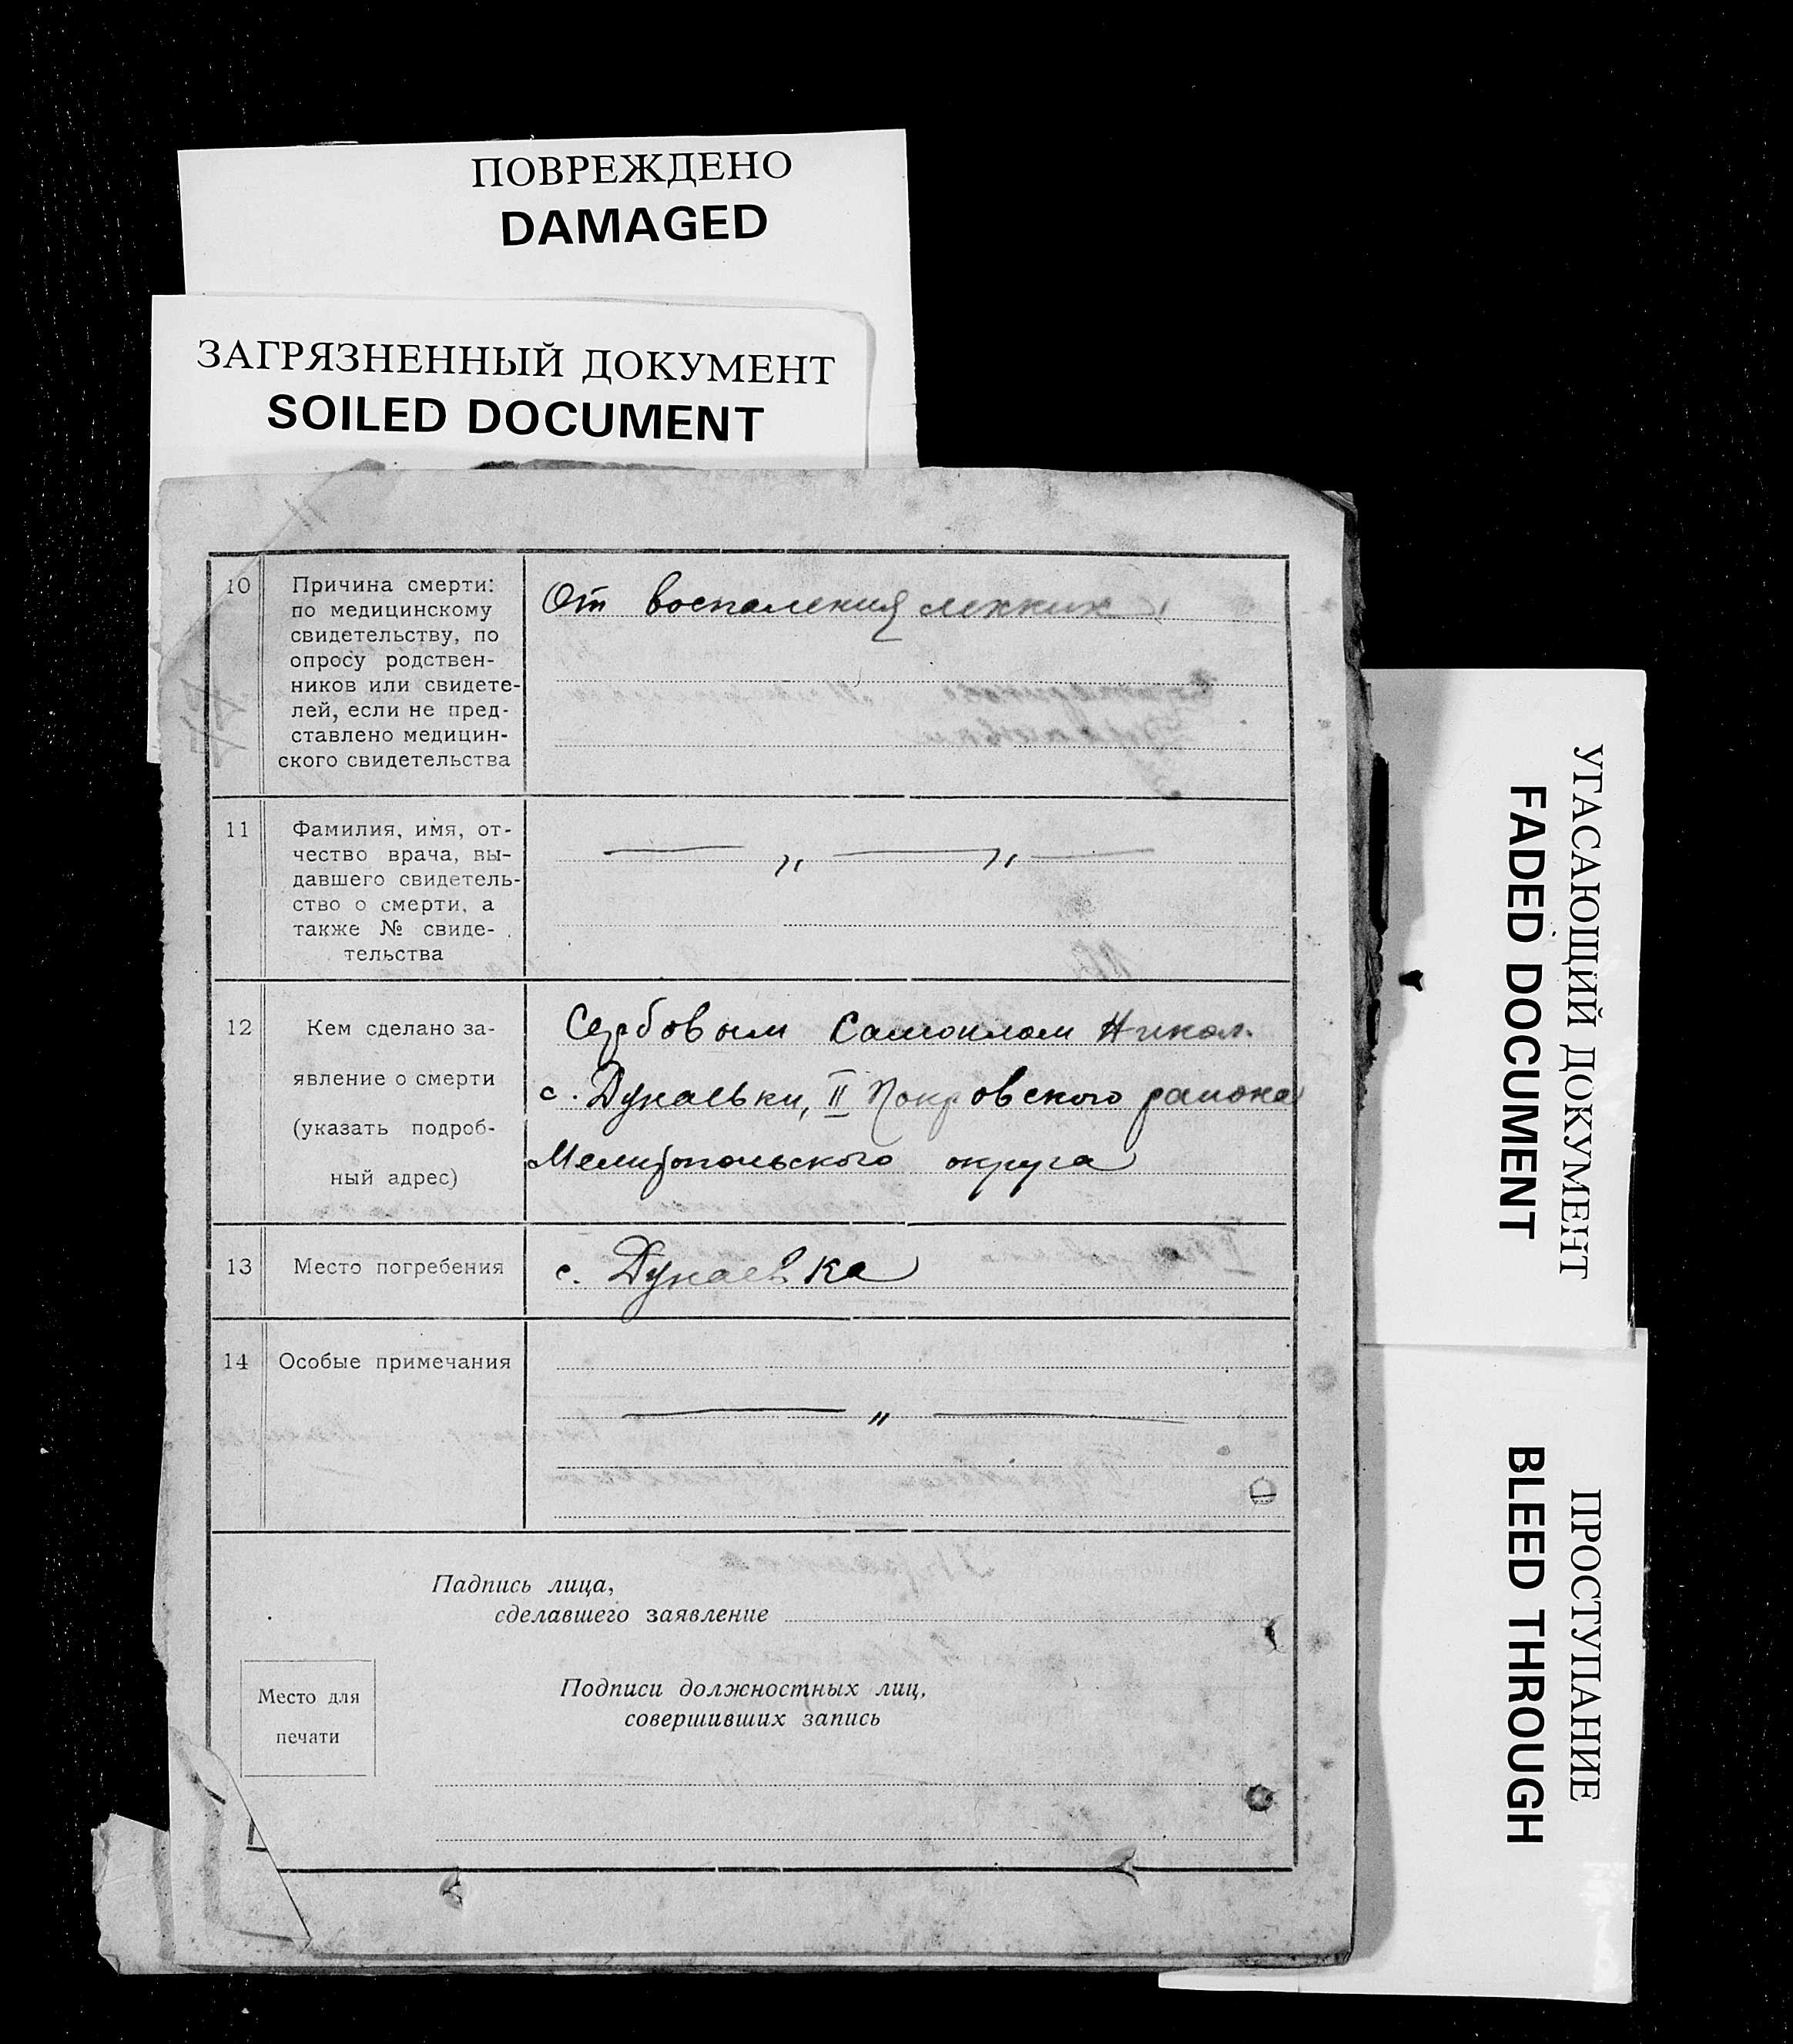 ПОВРЕЖДЕНО
DAMAGED
ЗАГРЯЗНЕННЫЙ ДОКУМЕНТ
SOILED DOCUMENT
10
Причина смерти:
по медицинскому
свидетельству, по
опросу родствен-
ников или свидете-
лей, если не пред-
ставлено медицин-
ского свидетельства
От воспаления легких
11
Фамилия, имя, от-
чество врача, вы-
давшего свидетель-
ство о смерти, а
также № свиде-
тельства
— „ — „ —
12
Кем сделано за-
явление о смерти
(указать подроб-
ный адрес)
Сербовым Самоилом Никол.
с. Дунаевки, II Покровского района
Мелитопольского округа
13
Место погребения
с. Дунаевка
14
Особые примечания
— „ —
Падпись лица,
сделавшего заявление
Место для
печати
Подписи должностных лиц,
совершивших запись
УГАСАЮЩИЙ ДОКУМЕНТ
FADED DOCUMENT
ПРОСТУПАНИЕ
BLEED THROUGH